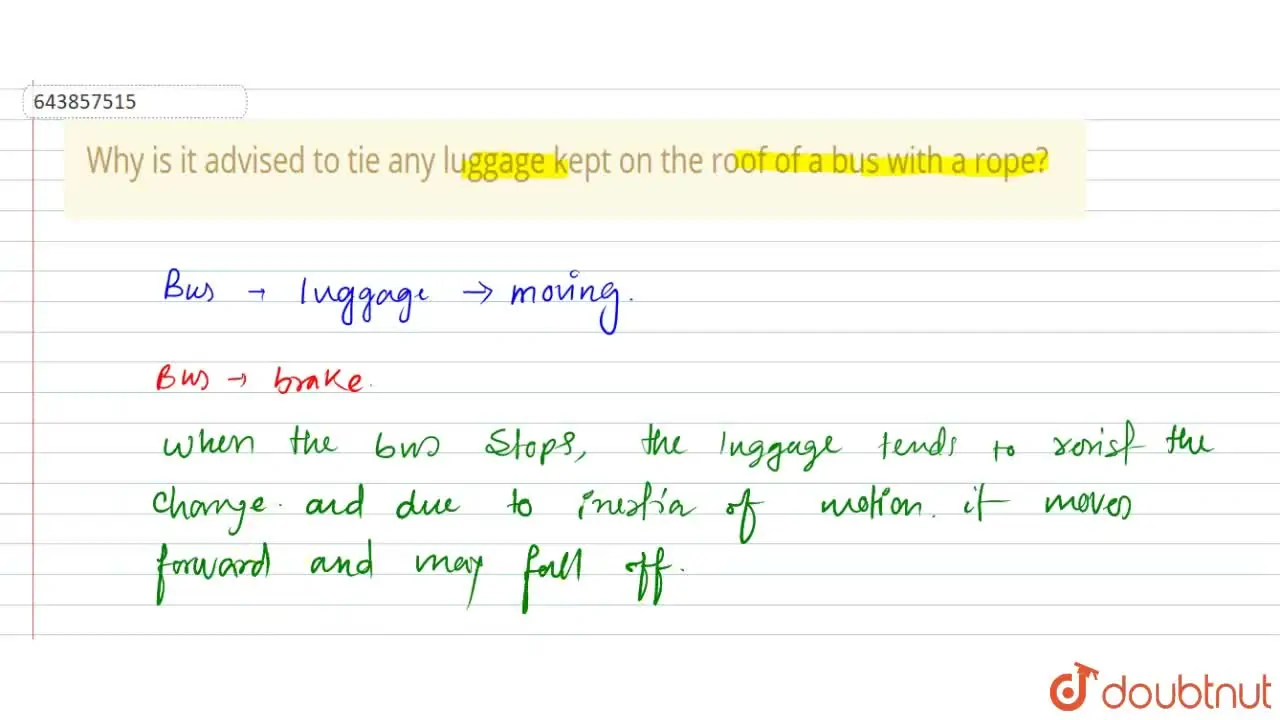 643857515
Why is it advised to tie any luggage kept on the roof of a bus with a rope?
Bus → luggage → moving.
Bus → brake.
When the bus stops, the luggage tends to resist the
change. and due to inertia of motion. it moves
forward and may fall off.
doubtnut